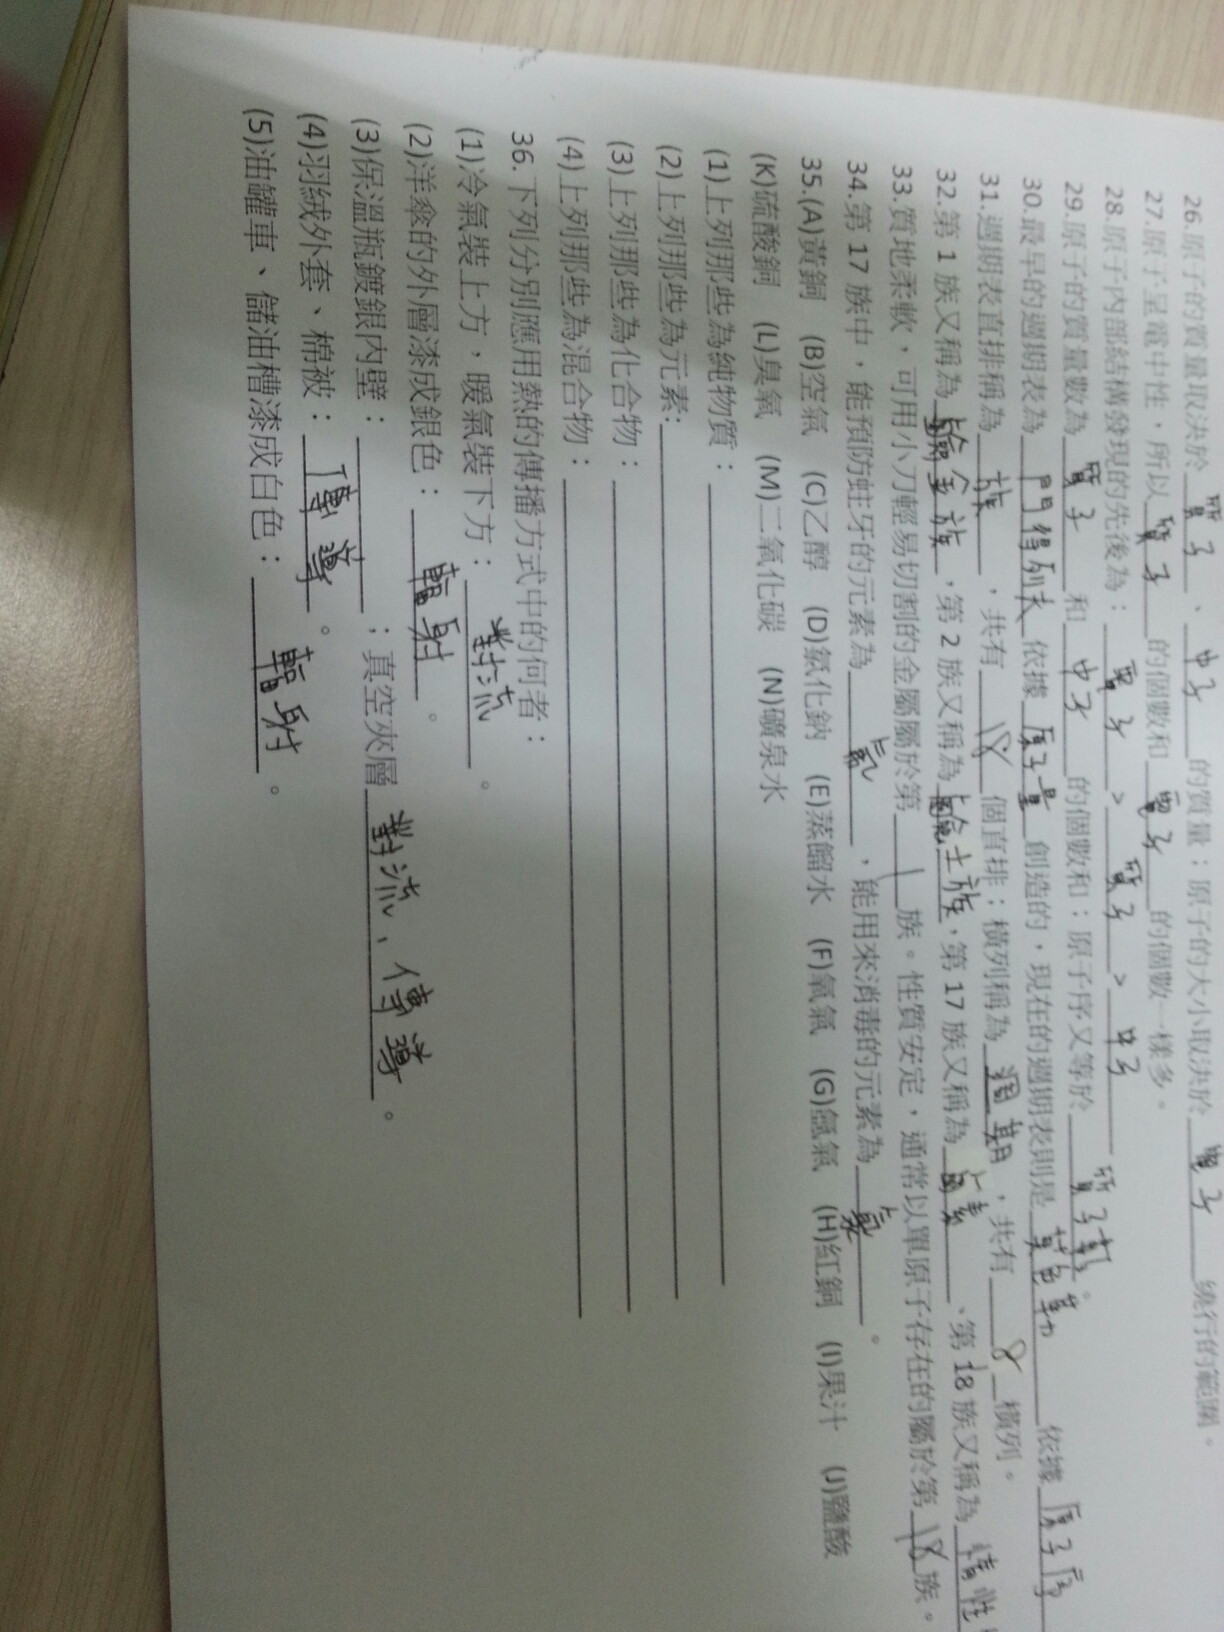 26.原子的質量取決於 質子 、 中子 的質量；原子的大小取決於 電子 繞行的範圍。
27.原子呈電中性，所以 質子 的個數和 電子 的個數一樣多。
28.原子內部結構發現的先後為： 電子 > 質子 > 中子
29.原子的質量數為 質子 和 中子 的個數和；原子序又等於 質子數。
30.最早的週期表為 門得列夫 依據 原子量 創造的，現在的週期表則是 莫色勒 依據 原子序
31.週期表直排稱為 族 ，共有 18 個直排；橫列稱為 週期 ，共有 8 橫列。
32.第 1 族又稱為 鹼金族 ，第 2 族又稱為 鹼土族 ，第 17 族又稱為 鹵素 、第 18 族又稱為 惰性
33.質地柔軟，可用小刀輕易切割的金屬屬於第 1 族。性質安定，通常以單原子存在的屬於第 18 族。
34.第 17 族中，能預防蛀牙的元素為 ，能用來消毒的元素為 。
35.(A)黃銅 (B)空氣 (C)乙醇 (D)氯化鈉 (E)蒸餾水 (F)氧氣 (G)氬氣 (H)紅銅 (I)果汁 (J)鹽酸
(K)硫酸銅 (L)臭氧 (M)二氧化碳 (N)礦泉水
(1)上列那些為純物質：
(2)上列那些為元素:
(3)上列那些為化合物：
(4)上列那些為混合物：
36.下列分別應用熱的傳播方式中的何者：
(1)冷氣裝上方，暖氣裝下方： 對流 。
(2)洋傘的外層漆成銀色： 輻射 。
(3)保溫瓶鍍銀內壁： ；真空夾層 對流、傳導 。
(4)羽絨外套、棉被： 傳導 。
(5)油罐車、儲油槽漆成白色： 輻射 。